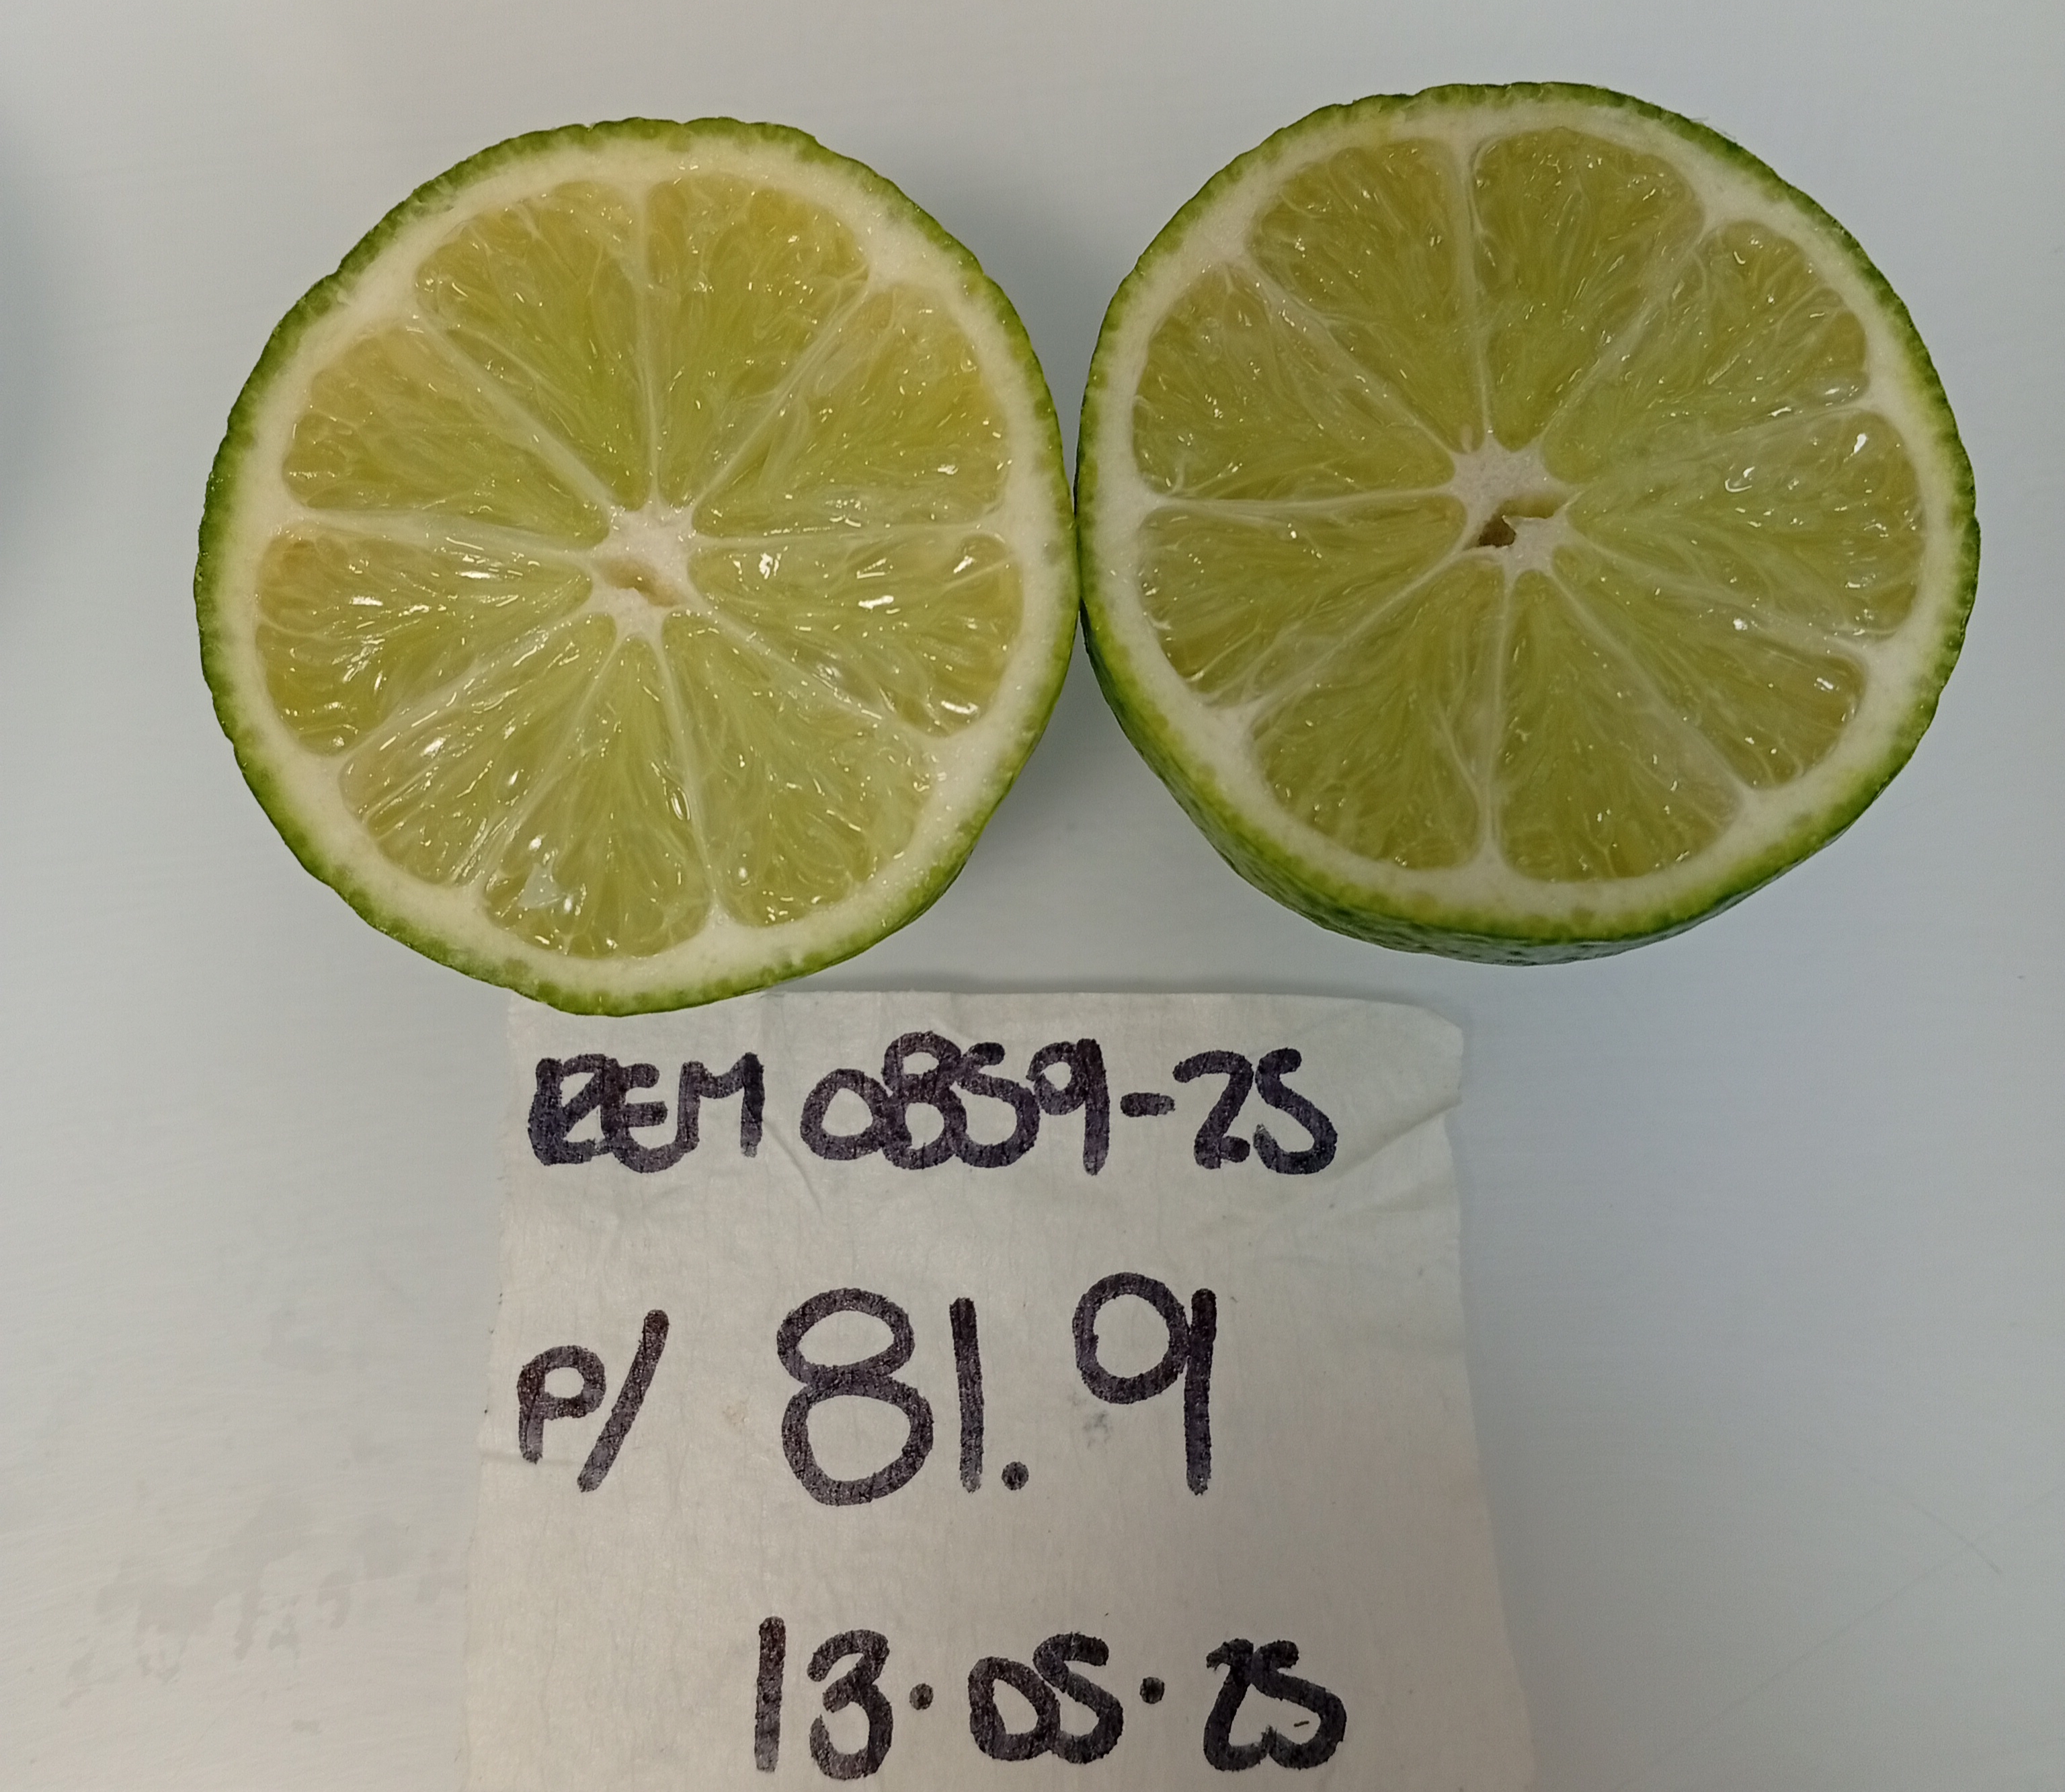 REM 0859-25
P/ 81.9
13.05.25